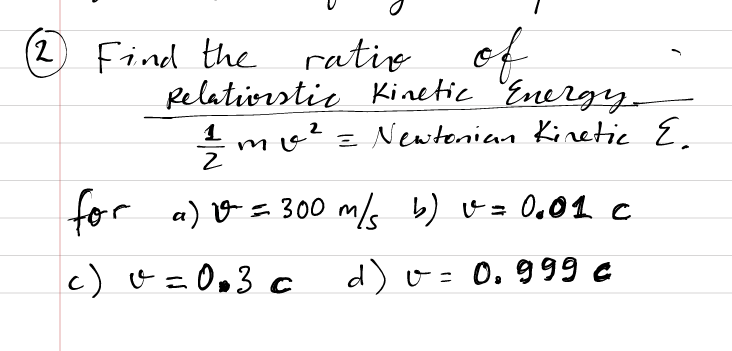 (2) Find the ratio of
Relativistic Kinetic Energy
1/2 m v² = Newtonian Kinetic E.
for a) v = 300 m/s b) v = 0.01 c
c) v = 0.3 c d) v = 0.999 c